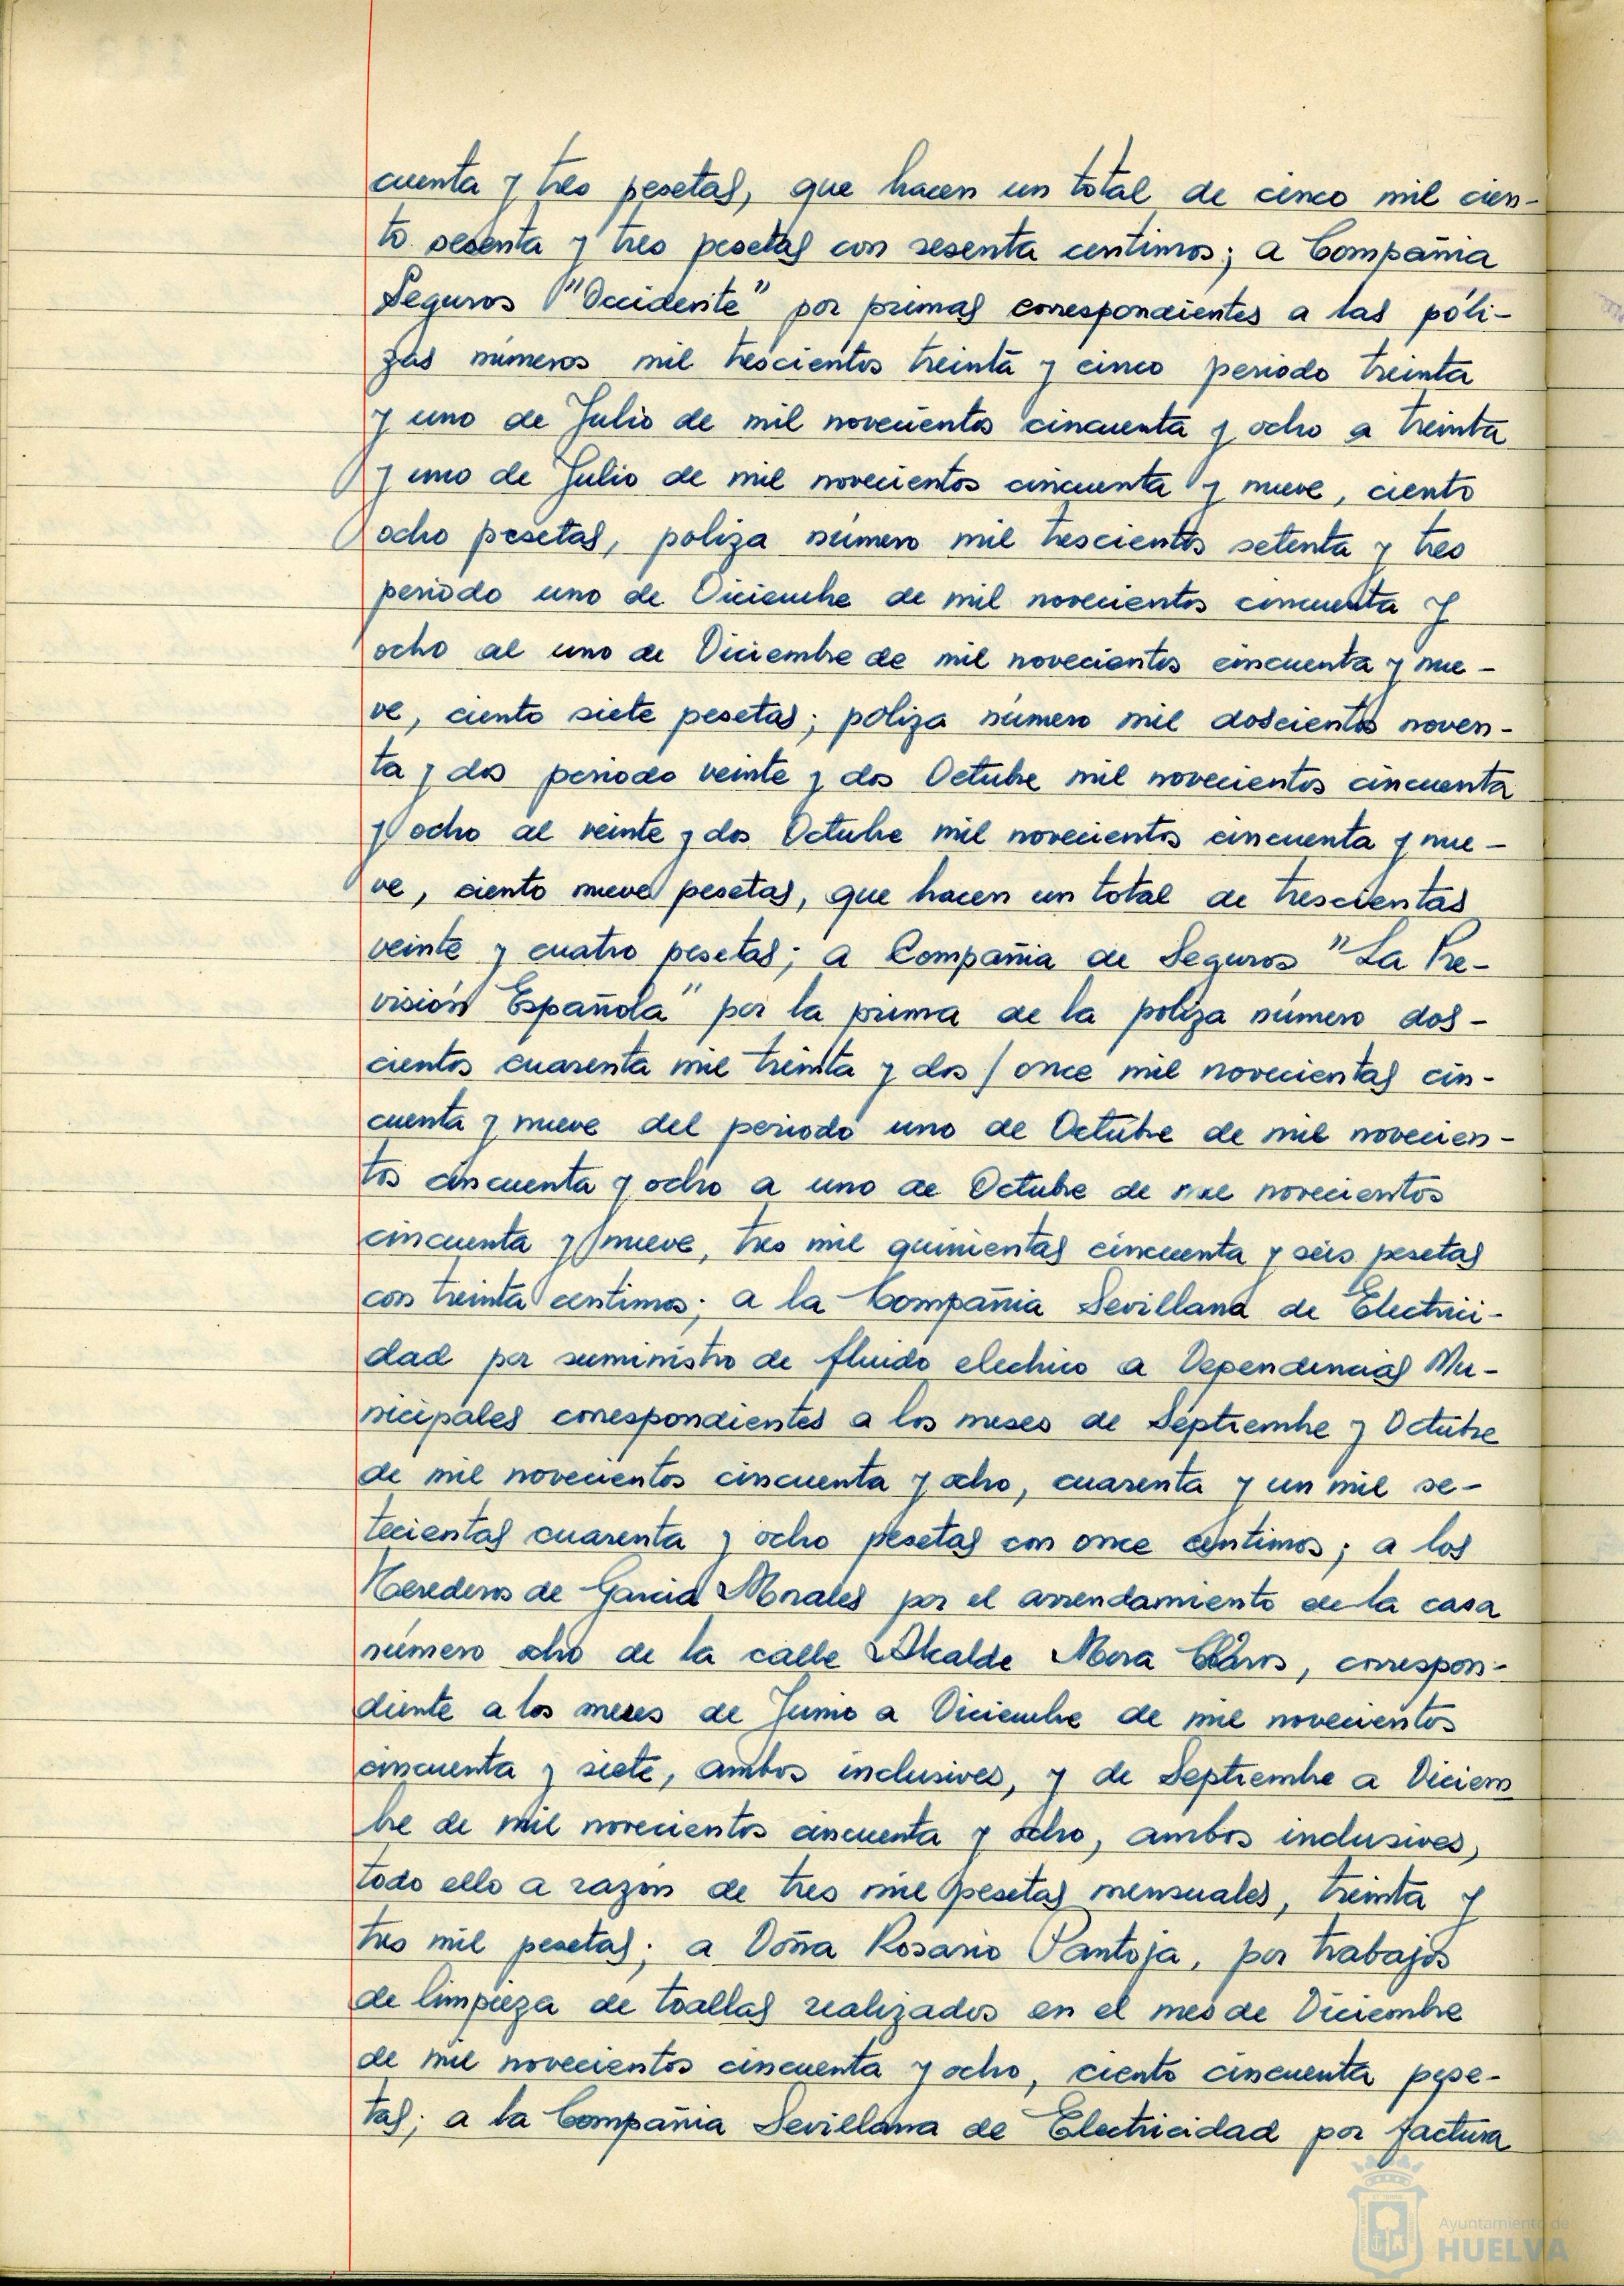 cuenta y tres pesetas, que hacen un total de cinco mil cien-
to sesenta y tres pesetas con sesenta centimos; a Compañia
Seguros "Occidente" por primas correspondientes a las póli-
zas números mil trescientos treinta y cinco periodo treinta
y uno de Julio de mil novecientos cincuenta y ocho a treinta
y uno de Julio de mil novecientos cincuenta y nueve, ciento
ocho pesetas, poliza número mil trescientos setenta y tres
periodo uno de Diciembre de mil novecientos cincuenta y
ocho al uno de Diciembre de mil novecientos cincuenta y nue-
ve, ciento siete pesetas; poliza número mil doscientos noven-
ta y dos periodo veinte y dos Octubre mil novecientos cincuenta
y ocho al veinte y dos Octubre mil novecientos cincuenta y nue-
ve, ciento nueve pesetas, que hacen un total de trescientas
veinte y cuatro pesetas; a Compañia de Seguros "La Pre-
visión Española" por la prima de la poliza número dos-
cientos cuarenta mil treinta y dos / once mil novecientas cin-
cuenta y nueve del periodo uno de Octubre de mil novecien-
tos cincuenta y ocho a uno de Octubre de mil novecientos
cincuenta y nueve, tres mil quinientas cincuenta y seis pesetas
con treinta centimos; a la Compañia Sevillana de Electrici-
dad por suministro de fluido electrico a Dependencias Mu-
nicipales correspondientes a los meses de Septiembre y Octubre
de mil novecientos cincuenta y ocho, cuarenta y un mil se-
tecientas cuarenta y ocho pesetas con once centimos; a los
Herederos de Garcia Morales por el arrendamiento de la casa
número ocho de la calle Alcalde Mora Claros, correspon-
diente a los meses de Junio a Diciembre de mil novecientos
cincuenta y siete, ambos inclusives, y de Septiembre a Diciem
bre de mil novecientos cincuenta y ocho, ambos inclusives,
todo ello a razón de tres mil pesetas mensuales, treinta y
tres mil pesetas; a Doña Rosario Pantoja, por trabajos
de limpieza de toallas realizados en el mes de Diciembre
de mil novecientos cincuenta y ocho, ciento cincuenta pese-
tas; a la Compañia Sevillana de Electricidad por factura
Ayuntamiento de
HUELVA